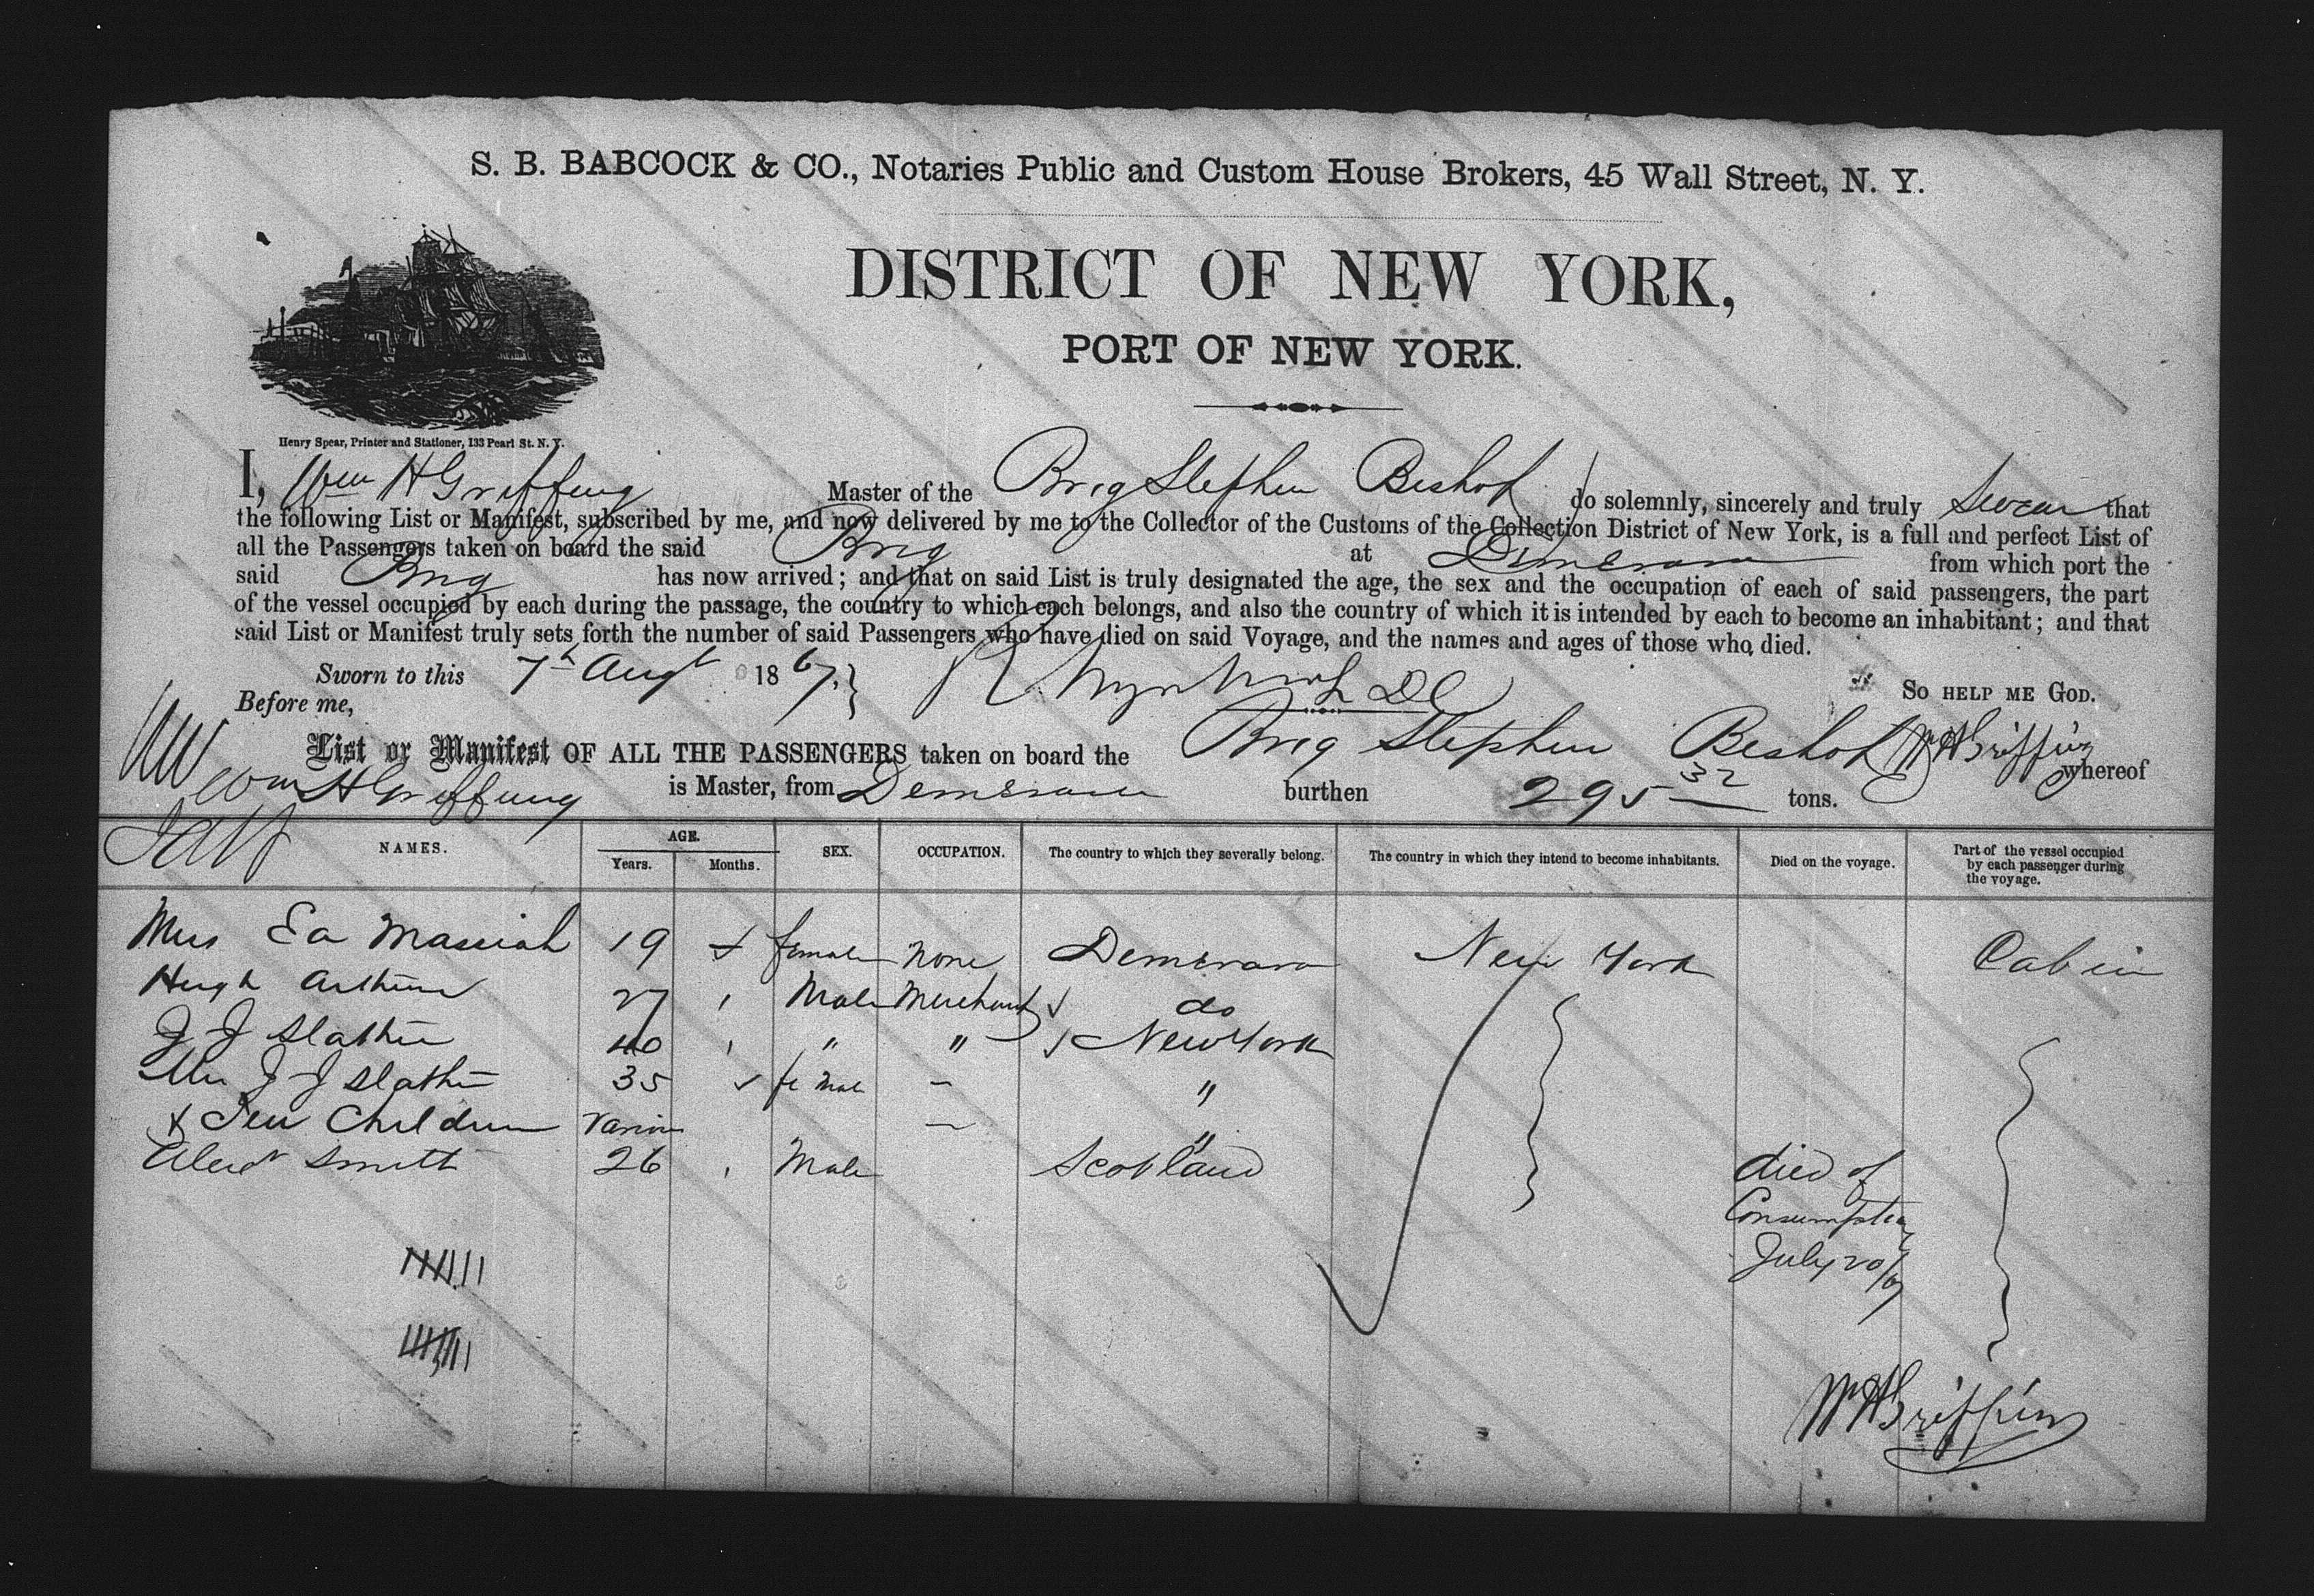 S. B. BABCOCK & CO., Notaries Public and Custom House Brokers, 45 Wall Street, N. Y.
DISTRICT OF NEW YORK,
PORT OF NEW YORK.
Henry Spear, Printer and Stationer, 133 Pearl St. N. Y.
I, Wm H Griffing Master of the Brig Stephen Bishop do solemnly, sincerely and truly Swear that
the following List or Manifest, subscribed by me, and now delivered by me to the Collector of the Customs of the Collection District of New York, is a full and perfect List of
all the Passengers taken on board the said Brig at Demerara from which port the
said Brig has now arrived; and that on said List is truly designated the age, the sex and the occupation of each of said passengers, the part
of the vessel occupied by each during the passage, the country to which each belongs, and also the country of which it is intended by each to become an inhabitant; and that
said List or Manifest truly sets forth the number of said Passengers who have died on said Voyage, and the names and ages of those who died.
Sworn to this 7th Augt 1867. SO HELP ME GOD.
Before me,
List or Manifest OF ALL THE PASSENGERS taken on board the Brig Stephen Bishop whereof
Wm H Griffing is Master, from Demerara burthen 295 32 tons.
Wm H Griffing
NAMES. AGE. Years. Months. SEX. OCCUPATION. The country to which they severally belong. The country in which they intend to become inhabitants. Died on the voyage. Part of the vessel occupied by each passenger during the voyage.
Ea Massiah 19 female none Demerara New York Cabin
Hugh Arthur 27 Male Merchant do
J J Slather 40 " " New York
J J Slather 35 fe male — "
Children — "
Smith 26 Male Scotland died of
Consumption
July 20/67
Wm H Griffing